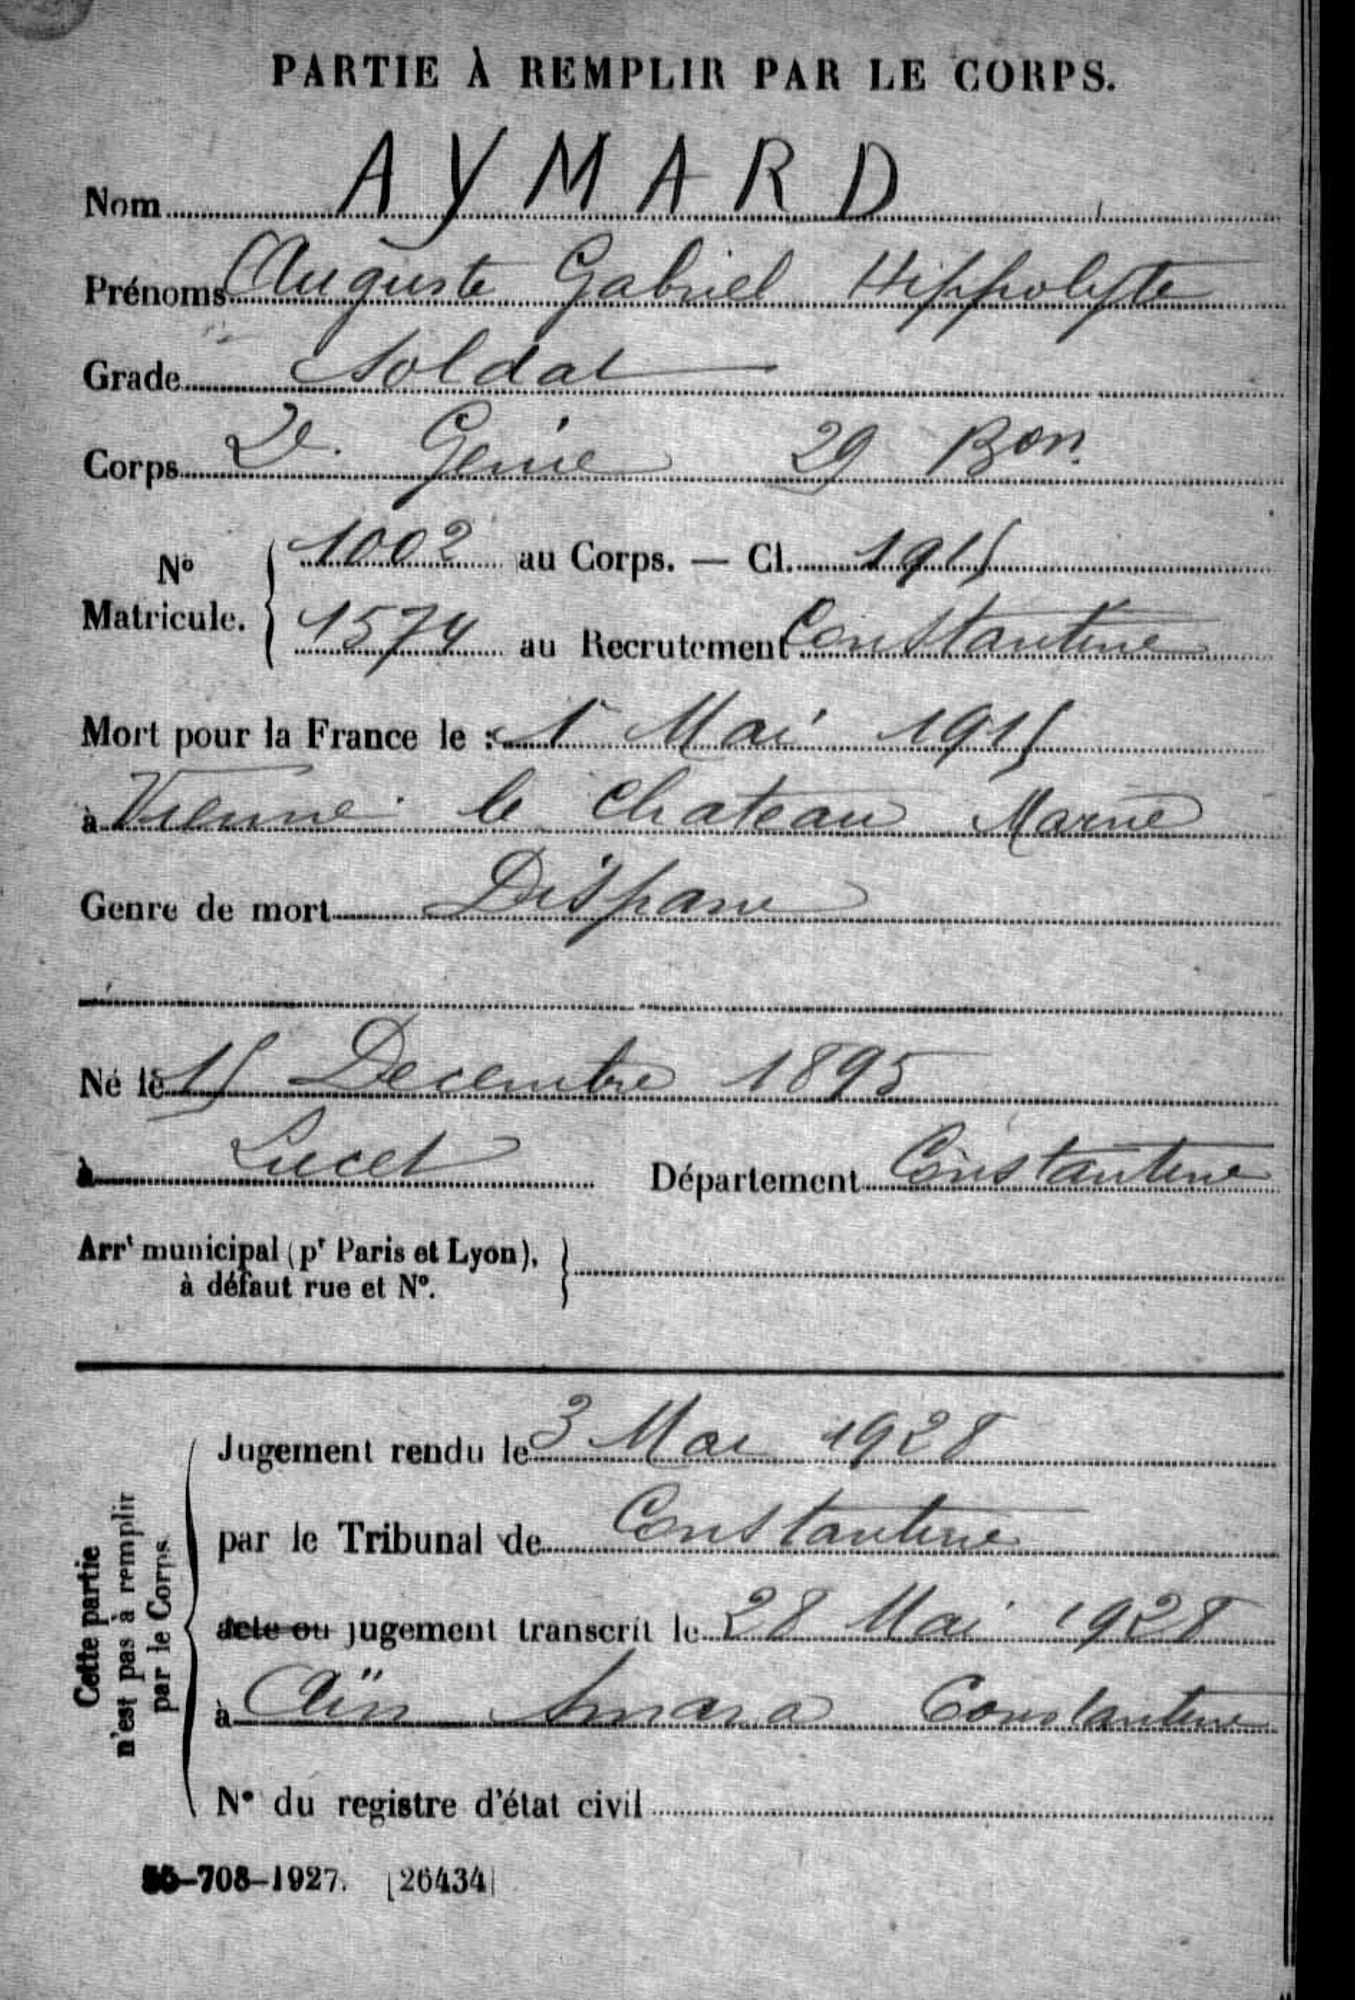 PARTIE À REMPLIR PAR LE CORPS.
Nom AYMARD
Prénoms Auguste Gabriel Hippolyte
Grade Soldat
Corps 2e Génie 29 Bon
No Matricule. 1002 au Corps. — Cl. 1915
1574 au Recrutement Constantine
Mort pour la France le : 1r Mai 1915
à Vienne le Chateau Marne
Genre de mort Disparu
Né le 15 Decembre 1895
à Lucet Département Constantine
Arrt municipal (pr Paris et Lyon),
à défaut rue et No.
Cette partie
n'est pas à remplir
par le Corps.
Jugement rendu le 3 Mai 1928
par le Tribunal de Constantine
acte ou jugement transcrit le 28 Mai 1928
à Aïn Smara Constantine
No du registre d'état civil
-708-1927. [26434]